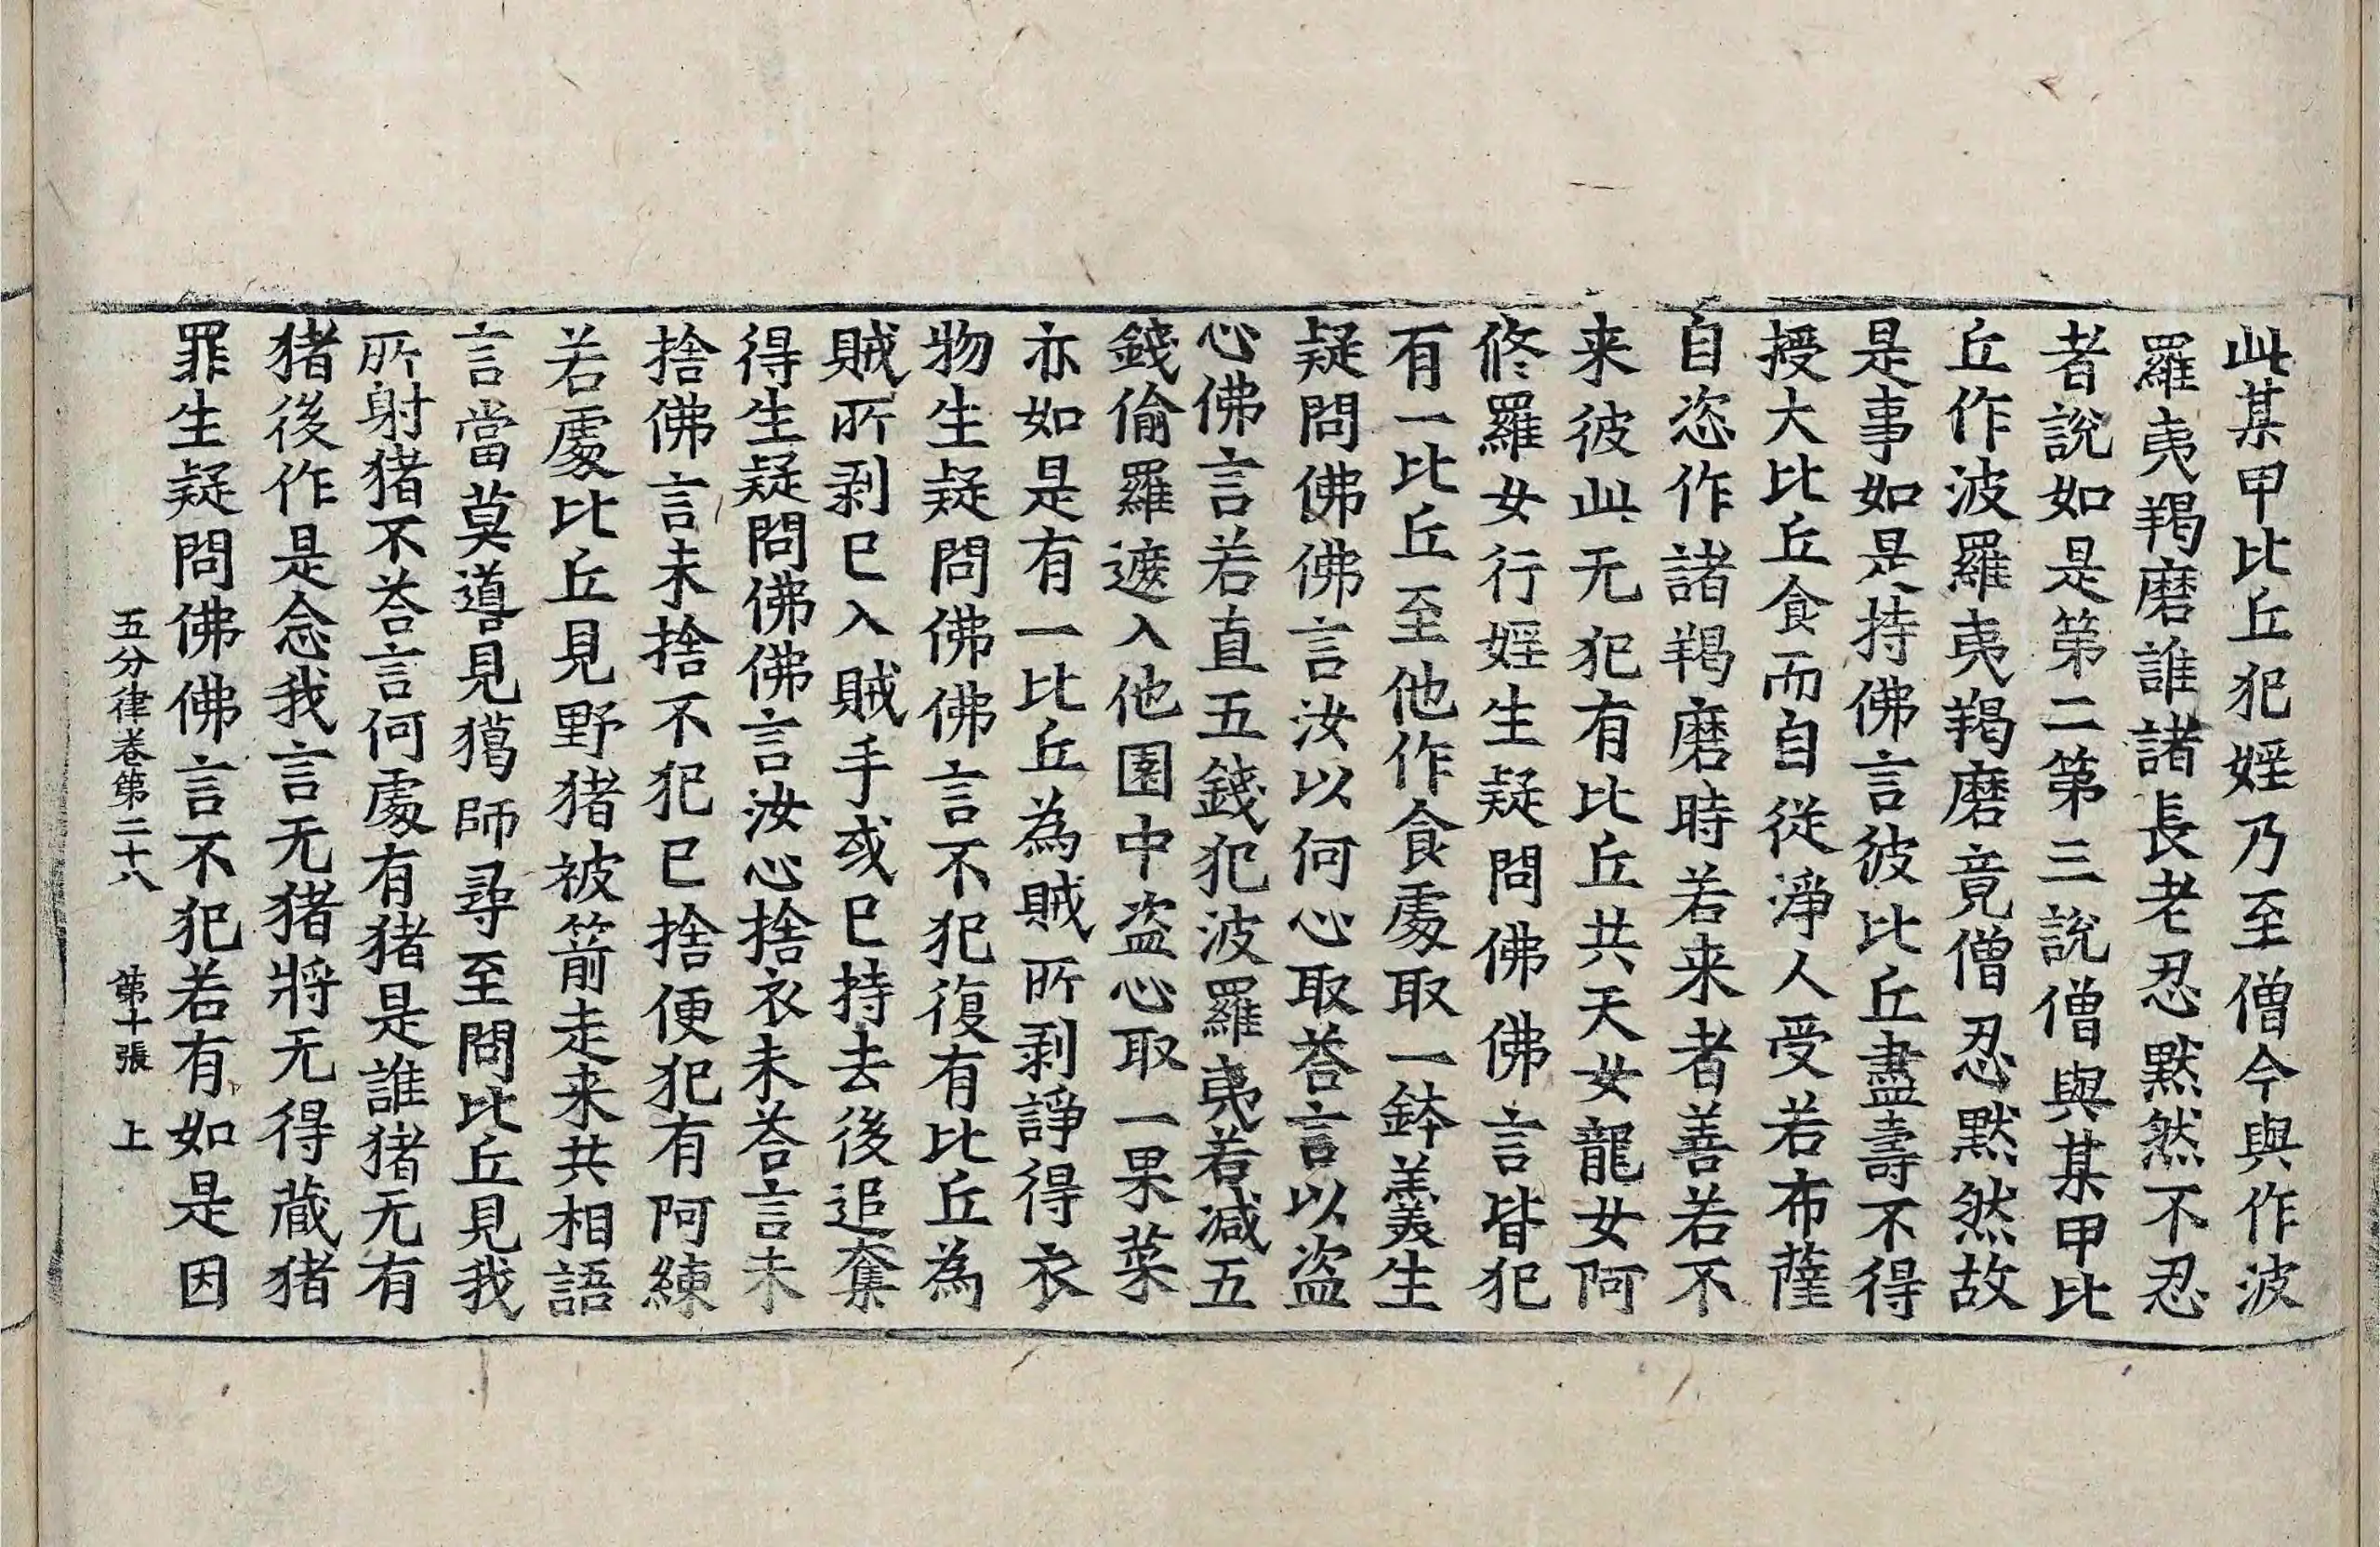 此某甲比丘犯婬乃至僧今與作波
羅夷羯磨誰諸長老忍默然不忍
者說如是第二第三說僧與某甲比
丘作波羅夷羯磨竟僧忍默然故
是事如是持佛言彼比丘盡壽不得
授大比丘食而自從淨人受若布薩
自恣作諸羯磨時若来者善若不
来彼此无犯有比丘共天女龍女阿
脩羅女行婬生疑問佛佛言皆犯
有一比丘至他作食處取一鉢羹生
疑問佛佛言汝以何心取荅言以盜
心佛言若直五錢犯波羅夷若減五
錢偷羅遮入他園中盜心取一果菜
亦如是有一比丘為賊所剥諍得衣
物生疑問佛佛言不犯復有比丘為
賊所剥已入賊手或已持去後追奪
得生疑問佛佛言汝心捨衣未荅言未
捨佛言未捨不犯已捨便犯有阿練
若處比丘見野猪被箭走来共相語
言當莫導見獦師尋至問比丘見我
所射猪不荅言何處有猪是誰猪无有
猪後作是念我言无猪將无得藏猪
罪生疑問佛佛言不犯若有如是因
五分律卷第二十八 第十張 上